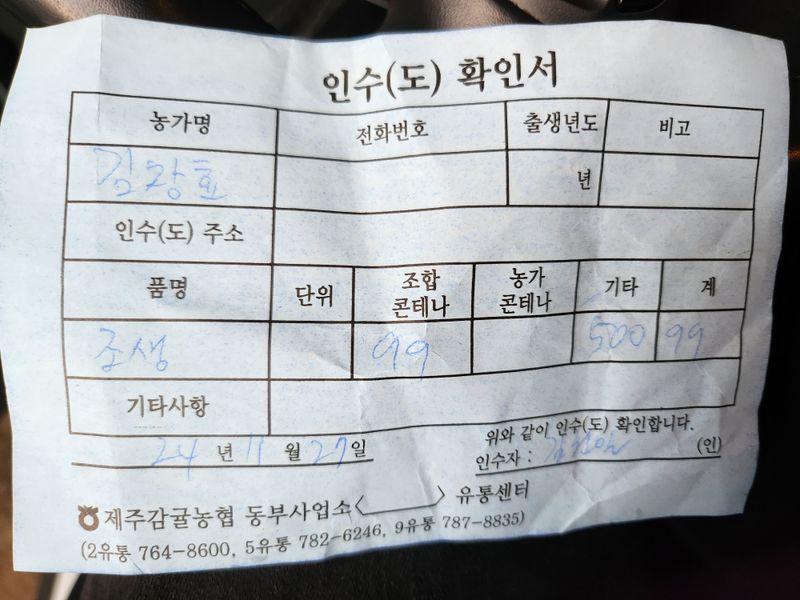 인수(도) 확인서
농가명 전화번호 출생년도 비고
김창효 년
인수(도) 주소
품명 단위 조합 콘테나 농가 콘테나 기타 계
조생 99 500 99
기타사항
위와 같이 인수(도) 확인합니다.
24 년 11 월 27 일
인수자 : (인)
제주감귤농협 동부사업소< > 유통센터
(2유통 764-8600, 5유통 782-6246, 9유통 787-8835)